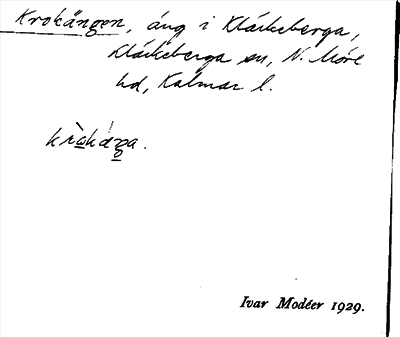 Krokängen, äng i Kläckeberga,
Kläckeberga sn, N. Möre
hd, Kalmar l.
Ivar Modéer 1929.